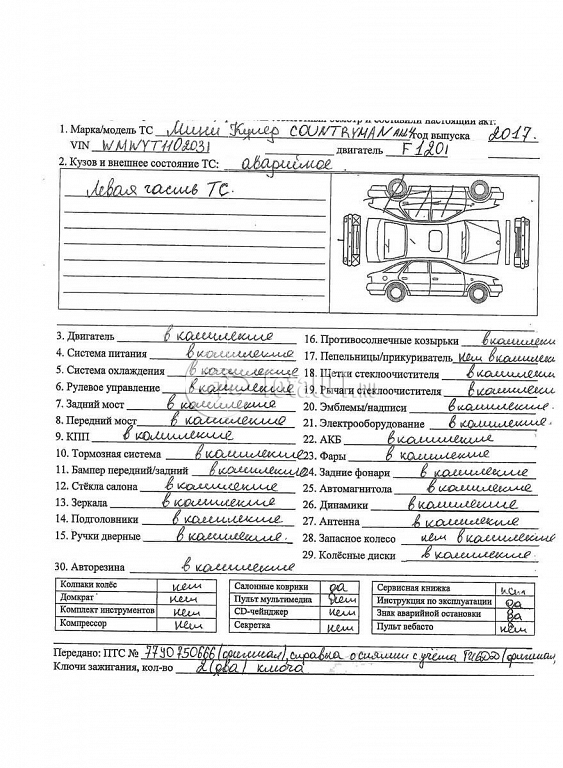 осмотр и составили настоящий акт:
1. Марка/модель ТС Мини Купер COUNTRYMAN год выпуска 2017.
VIN двигатель F 120I
2. Кузов и внешнее состояние ТС: аварийное
Левая часть ТС.
3. Двигатель в комплекте
4. Система питания в комплекте
5. Система охлаждения в комплекте
6. Рулевое управление в комплекте
7. Задний мост в комплекте
8. Передний мост в комплекте
9. КПП в комплекте
10. Тормозная система в комплекте
11. Бампер передний/задний в комплекте
12. Стёкла салона в комплекте
13. Зеркала в комплекте
14. Подголовники в комплекте
15. Ручки дверные в комплекте
16. Противосолнечные козырьки в комплекте
17. Пепельницы/прикуриватель нет в комплекте
18. Щетки стеклоочистителя в комплекте
19. Рычаги стеклоочистителя в комплекте
20. Эмблемы/надписи в комплекте.
21. Электрооборудование в комплекте.
22. АКБ в комплекте
23. Фары в комплекте
24. Задние фонари в комплекте
25. Автомагнитола в комплекте
26. Динамики в комплекте
27. Антенна в комплекте
28. Запасное колесо нет в комплекте
29. Колёсные диски в комплекте
30. Авторезина в комплекте
Колпаки колёс нет
Домкрат нет
Комплект инструментов нет
Компрессор нет
Салонные коврики да
Пульт мультимедиа нет
CD-чейнджер нет
Секретка нет
Сервисная книжка нет
Инструкция по эксплуатации да
Знак аварийной остановки да
Пульт вебасто нет
Передано: ПТС № (оригинал), справка о снятии с учёта ГИБДД (оригинал)
Ключи зажигания, кол-во 2 (два) ключа